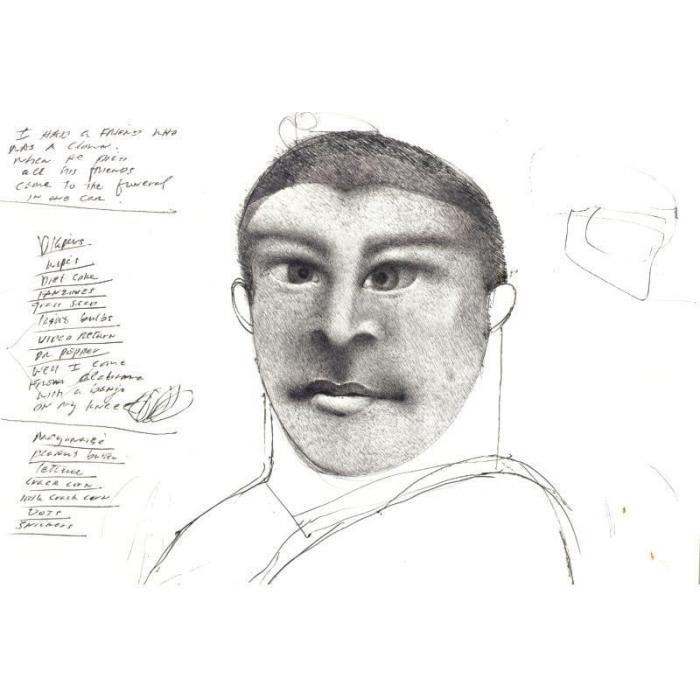 I HAD a FRIEND WHO
WAS A Clown.
When he DIED
all his friends
came to the funeral
IN one car.
Diapers
wipes
Diet coke
grass seed
light bulbs
video return
DR pepper
Well I come
from Alabama
with a banjo
on my knee
Mayonaise
peanut butter
lettuce
crack corn
crack corn
DOTS
Snickers